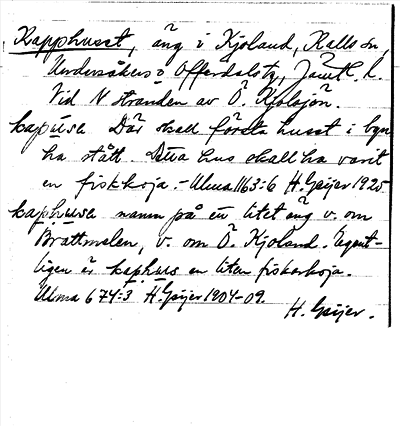 Kapphuset, äng i Kjoland, Kallsn,
Undersåkers o Offerdals tg, Jämtl. l.
Vid N stranden av Ö. Kjolsjön.
kapu̇sa Där skall första huset i byn
ha stått. Detta hus skall ha varit
en fiskkoja. - Ulma 1163:6 H. Geijer 1925
kaphusa namn på en liten äng v. om
Brattmalen, v. om Ö. Kjoland. Egent-
ligen är kaphus en liten fiskarkoja.
Ulma 674:3 H. Geijer 1904-09.
H. Geijer.